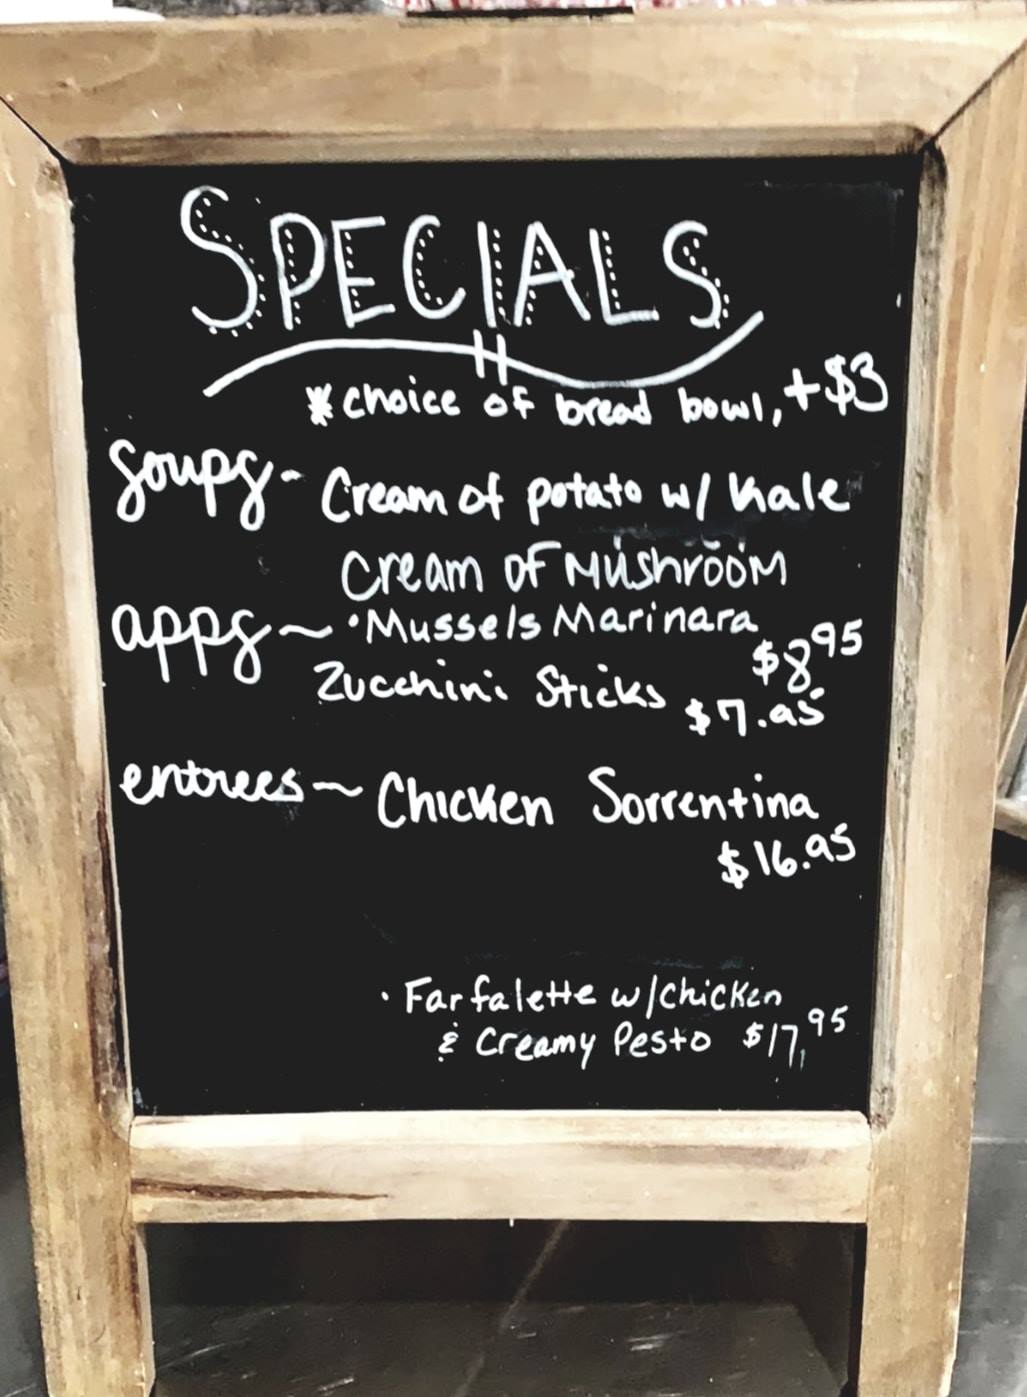 SPECIALS
* choice of bread bowl, +$3
Soups - Cream of potato w/ Kale
Cream of Mushroom
apps ~ • Mussels Marinara
$8 95
Zucchini Sticks $7.95
entrees ~ Chicken Sorrentina
$16.95
• Farfalette w/chicken
& Creamy Pesto $17,95